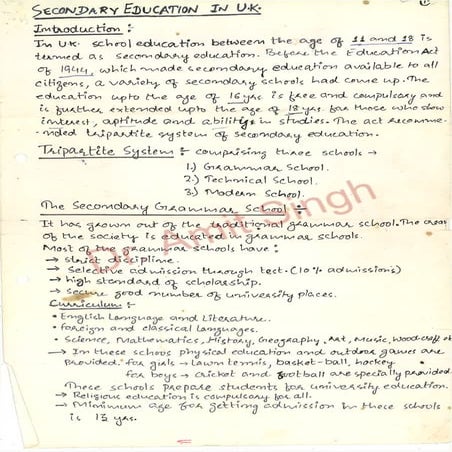 SECONDARY EDUCATION IN U.K.
Introduction :
In U.K. school education between the age of 11 and 18 is
termed as secondary education. Before the Education Act
of 1944, which made secondary education available to all
citizens, a variety of secondary schools had come up. The
education upto the age of 16 yrs is free and compulsory and
is further extended upto the age of 18 yrs for those who show
interest, aptitude and ability in studies. The act recomme-
nded tripartite system of secondary education.
Tripartite System :- comprising three schools →
1.) Grammar School.
2.) Technical School.
3.) Modern School.
The Secondary Grammar School :-
It has grown out of the traditional grammar school. The cream
of the society is educated in grammar schools.
Most of the grammar schools have :
→ strict discipline.
→ Selective admission through test. (10% admissions)
→ high standard of scholarship.
→ secure good number of university places.
Curriculum :-
• English Language and Literature.
• foreign and classical languages.
• Science, Mathematics, History, Geography, Art, Music, Woodcraft
→ In these school physical education and outdoor games are
provided. for girls → Lawn tennis, basket-ball, hockey
for boys → cricket and football are specially provided
These schools prepare students for university education.
→ Religious education is compulsary for all.
→ Minimum age for getting admission in these schools
is yrs.
Dr. Amit Singh